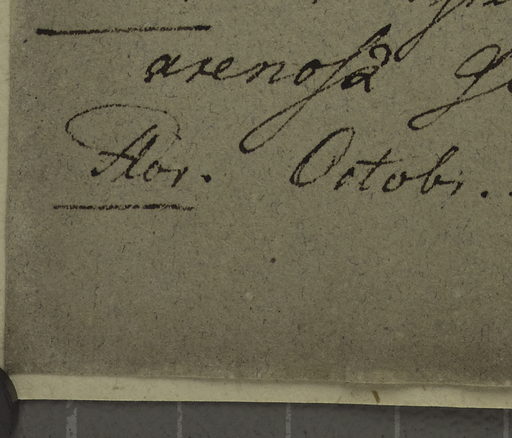 arenosâ
Flor. Octobr.